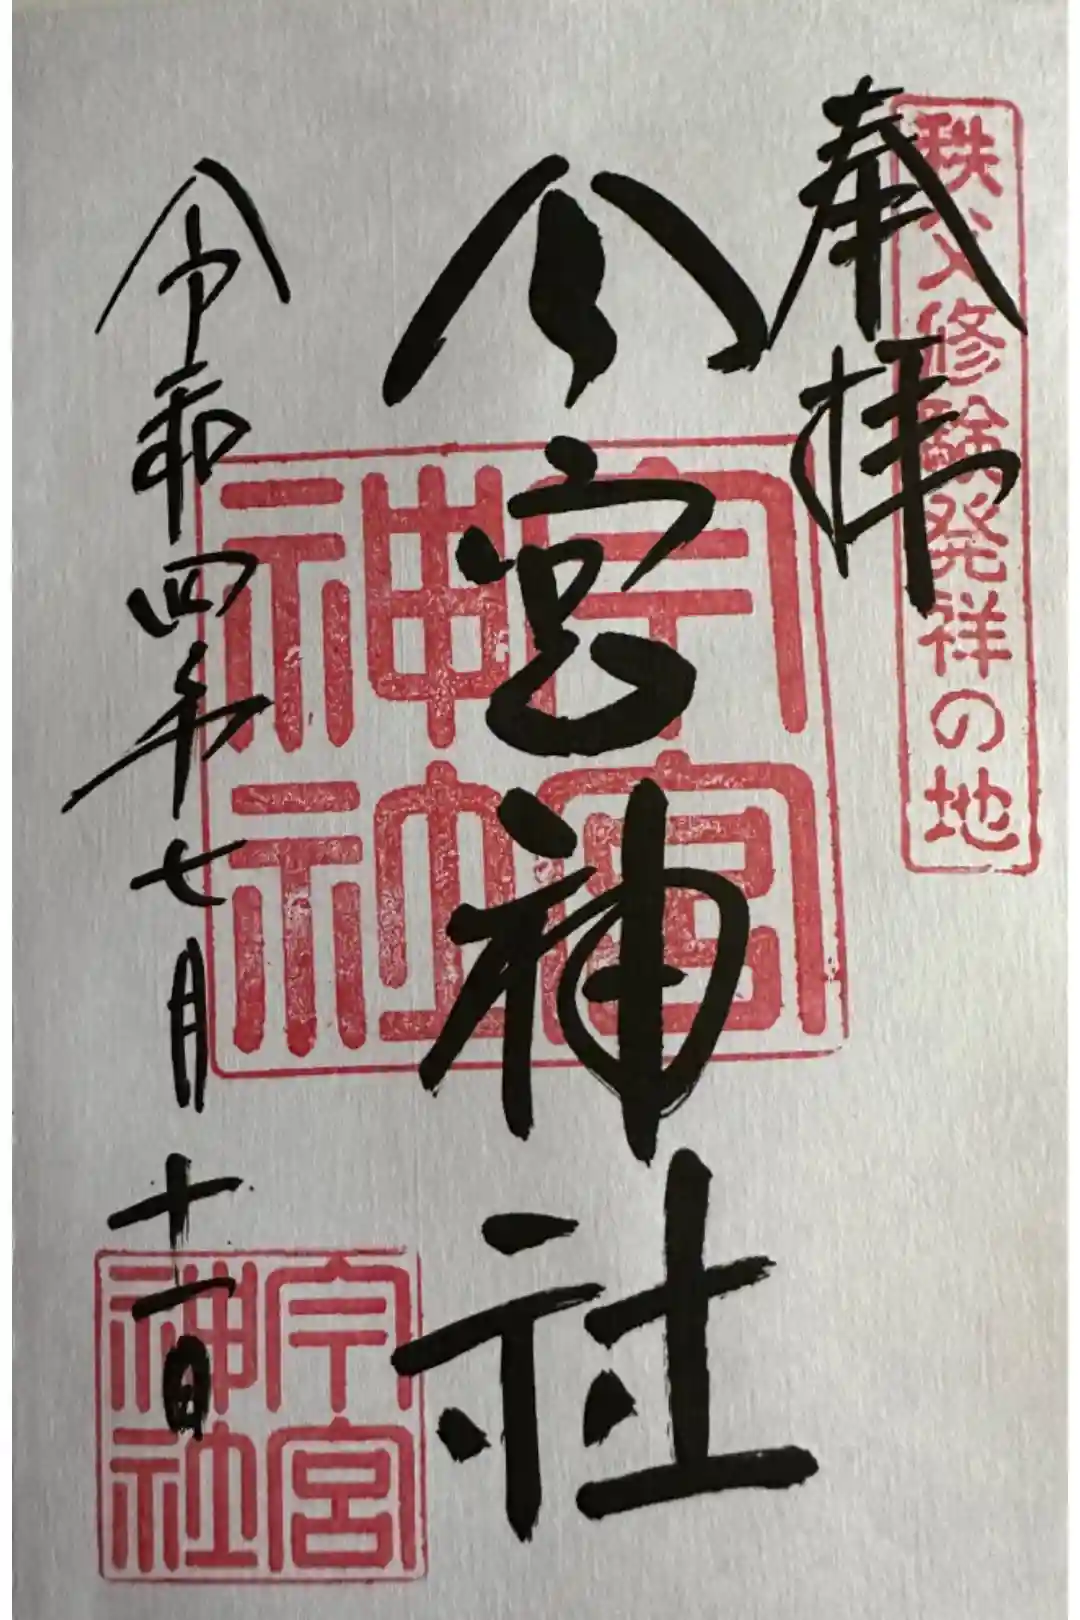 秩父修験発祥の地
奉拝
今宮神社
今宮神社
令和四年七月十一日
今宮神社